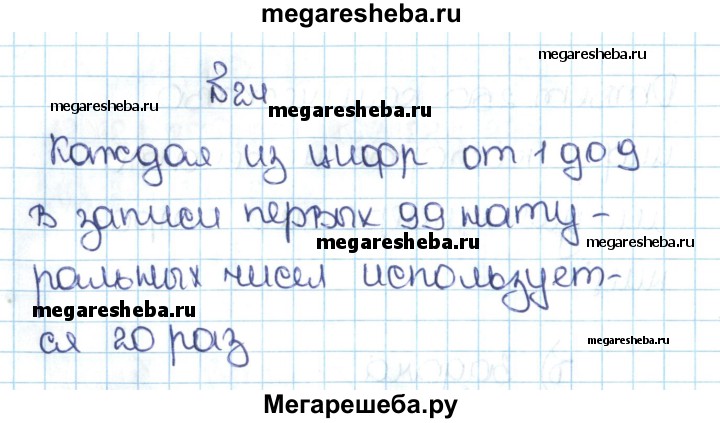 megaresheba.ru
megaresheba.ru
В 24
megaresheba.ru
megaresheba.ru
Каждая из цифр от 1 до 9
в записи первых 99 нату-
megaresheba.ru
megaresheba.ru
ральных чисел использует-
megaresheba.ru
ся 20 раз
megaresheba.ru
Мегарешеба.ру